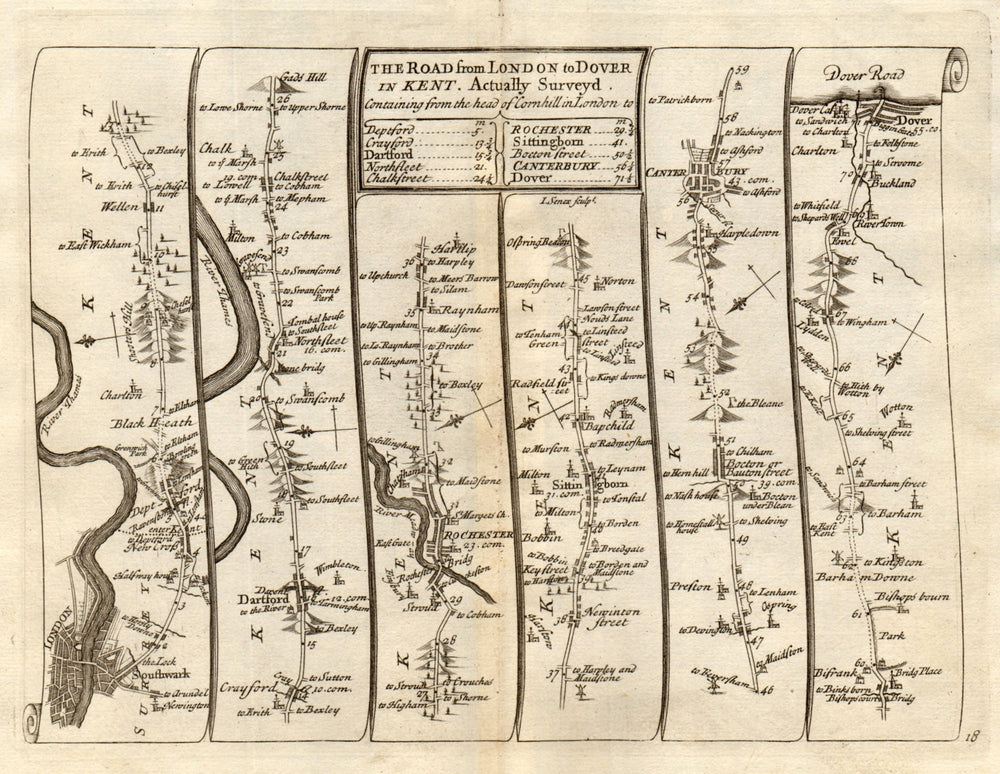 THE ROAD from LONDON to DOVER
IN KENT. Actually Survey'd.
Containing from the head of Cornhill in London to
m
Deptford 5
Crayford 13
Dartford
Northfleet 21
Chalkstreet
m
ROCHESTER
Sittingborn 41
Bocton street
CANTERBURY
Dover
I. Senex sculpt.
KENT
to Erith
to Bexley
12
to Erith
to Chisel
hurst
Wellen
11
to East Wickham
10
9
Charlton
7
to Eltham
Black Heath
Greenwich
Park
to Eltham
River Thames
enter Kent
New Cross
4
Halfway house
3
2
LONDON
the Lock
Southwark
to Arundel
Newington
SURREY
Gads Hill
26
to Lowe Shorne
to upper Shorne
Chalk
25
to ye Marsh
Chalkstreet
19. com.
to Lowell
to Cobham
to ye Marsh
to Mepham
24
Milton
to Cobham
23
River Thames
to Swanscomb
to Swanscomb
Park
22
Tombal house
to Southfleet
Northfleet
21
16. com.
Stone bridg
to Swanscomb
20
19
to Green
Hith
to Southfleet
18
to Southfleet
Stone
17
Wimbleton
Dartford
16
12. com.
to the River
to Farmingham
to Bexley
15
KENT
Cray
to Sutton
Crayford
10. com.
to Erith
to Bexley
Hartlip
to Harpley
36
to Upchurch
to Meers Barrow
to Silam
35
Raynham
to Up. Raynham
to Maidstone
to Lo. Raynham
to Brother
to Gillingham
34
to Bexley
33
to Gillingham
32
to Maidstone
31
St. Margets Ch.
East Gate
ROCHESTER
23. com.
Bridg
Rochester
Stroud
29
to Cobham
28
to Stroud
to Crouches
27
to Shorne
to Higham
KENT
Ospring Beacon
45
Dawson street
Norton
Lawson street
Nouds Lane
44
to Tenham
Green
to Linsteed
street
to Linsteed
43
Radfield street
to Kings downe
42
Radmersham
Bapchild
to Radmersham
to Murston
Milton
to Leynam
Sittingborn
31. com.
to Tonstal
to Milton
40
to Borden
Bobbin
to Breedgate
to Bobbin
Key street
to Borden and
Maidstone
39
Newinton
street
38
37
to Harpley and
Maidstone
KENT
59
to Patrickborn
58
to Nackington
to Ashford
57
CANTERBURY
43. com.
to Ashford
56
Harpledown
55
54
53
52
the Bleane
51
to Chilham
Bocton or
Bauton street
to Hernhill
39. com.
50
to Nash house
to Bocton
under Blean
to Homestall
house
to Shelving
49
Preston
48
to Lenham
Ospring
to Devington
47
to Maidston
to Feversham
46
KENT
Dover Road
Dover Castle
to Sandwich
Dover
71
55. co
to Charlton
to Folkstone
Charlton
to Stroome
70
Buckland
to Whitfield
to Shepards Well
69
River Town
Ewel
68
67
to Wingham
Lydden
66
to Hith by
Wotton
65
Wotton
to Shelving street
64
to Barham street
63
to Barham
to East
Kent
to Kingston
62
Barham Downe
Bishops bourn
61
Park
60
Bifrank
Bridg Place
to Binksborn
Bishops court
Bridg
KENT
18